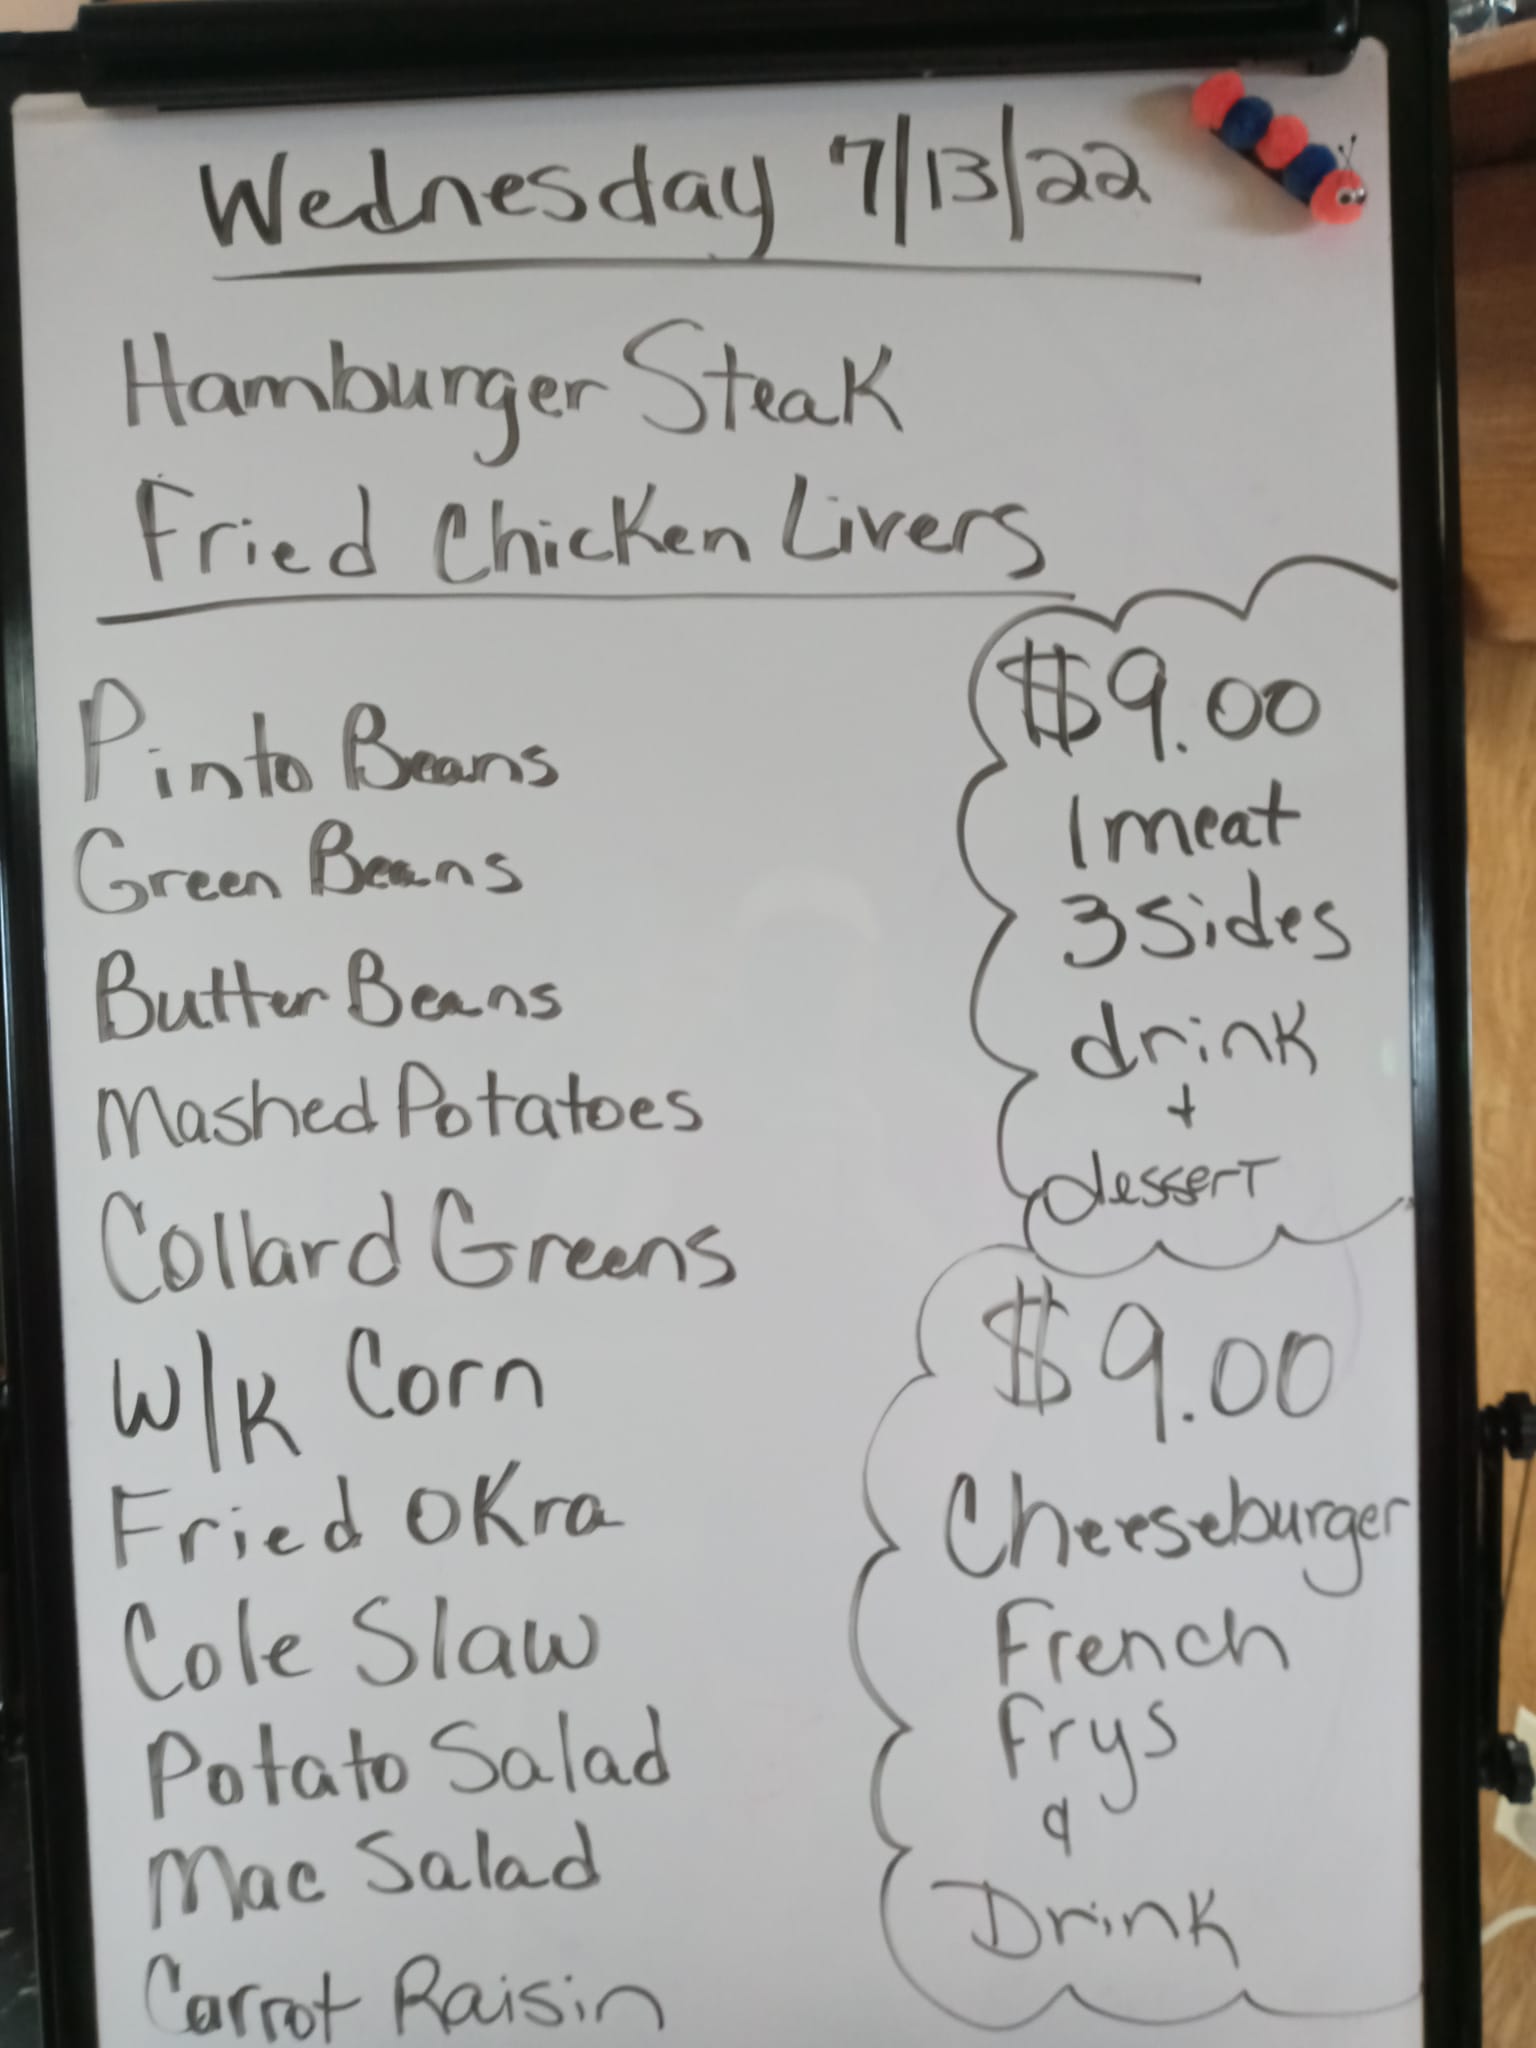 Wednesday 7/13/22
Hamburger Steak
Fried Chicken Livers
Pinto Beans
Green Beans
Butter Beans
Mashed Potatoes
Collard Greens
W/K Corn
Fried Okra
Cole Slaw
Potato Salad
Mac Salad
Carrot Raisin
$9.00
1 meat
3 sides
drink
+
dessert
$9.00
Cheeseburger
French
Frys
&
Drink